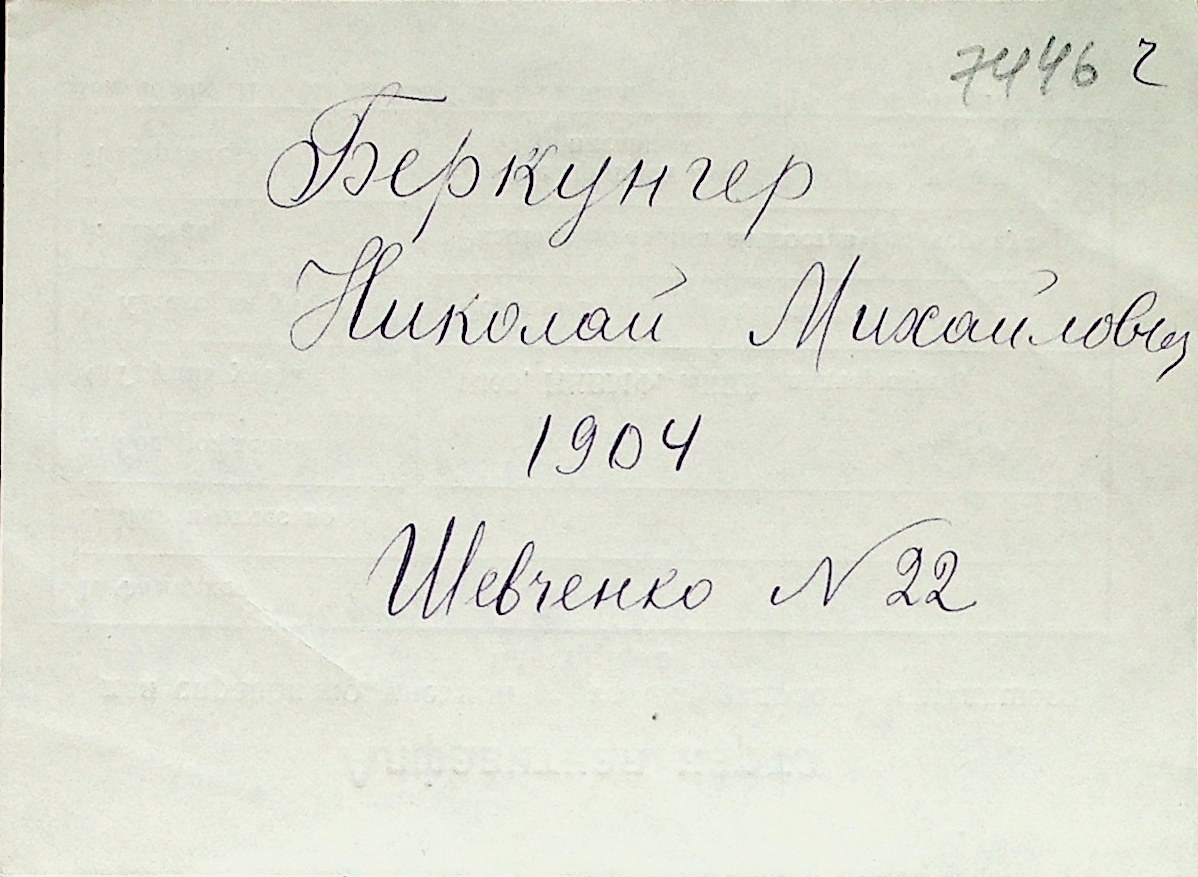 7446 г
Беркунгер
Николай Михайлович
1904
Шевченко N 22